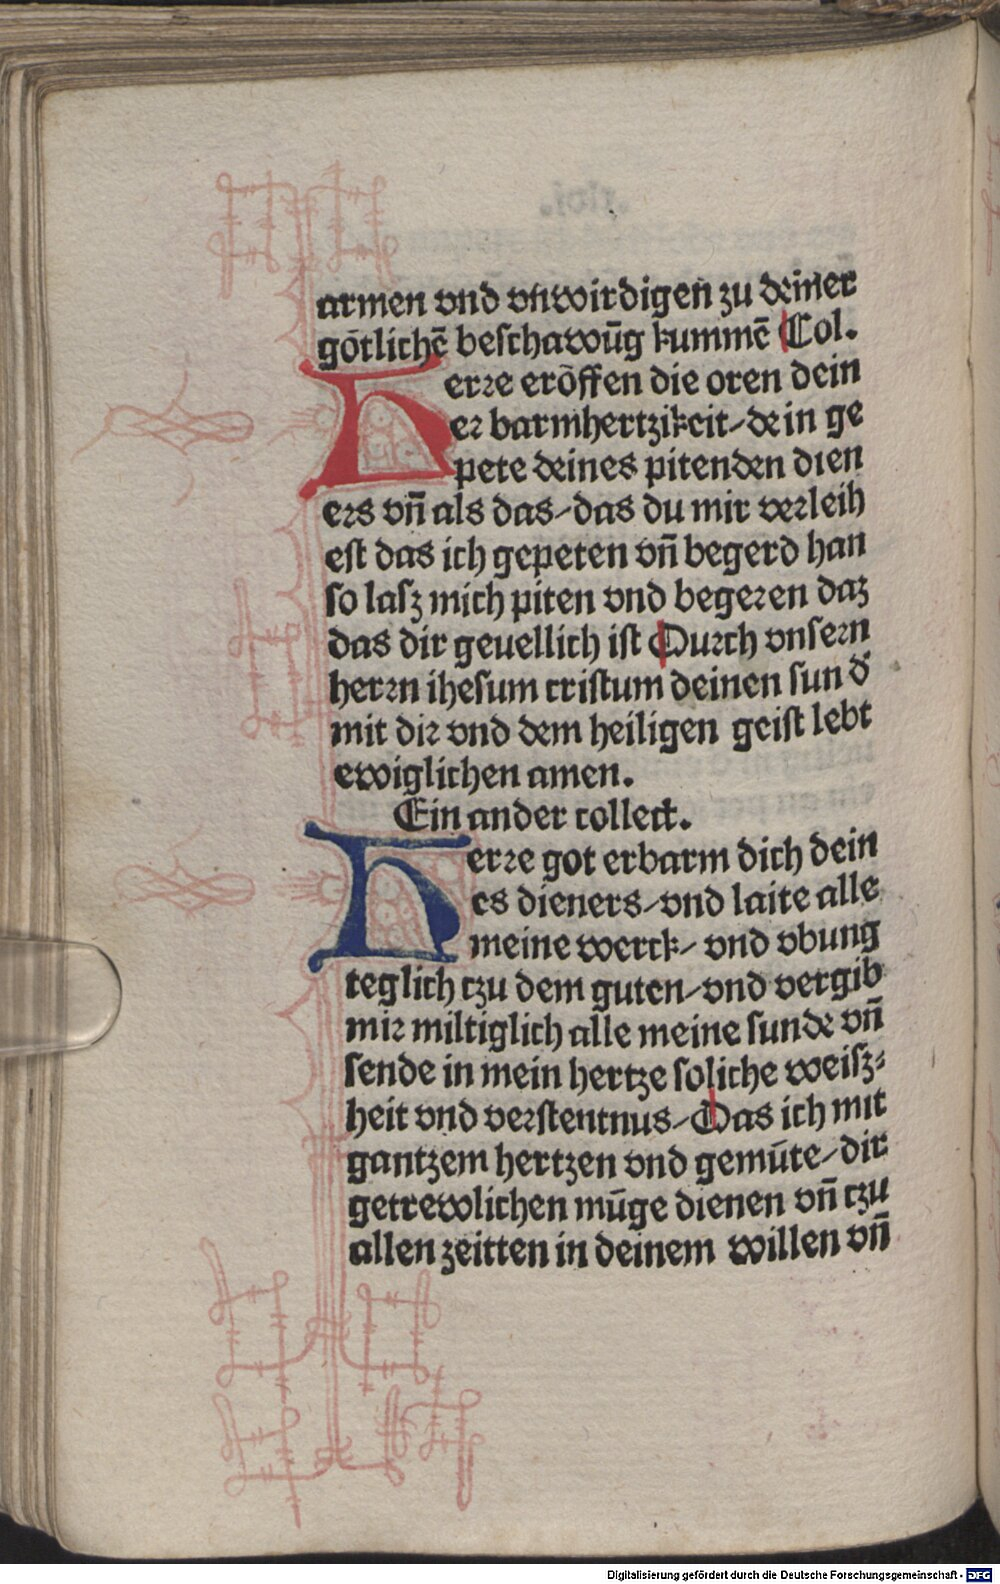 armen vnd vnwirdigen zu deiner
gȯtlichē beschawūg kummē Col.
Herre erȯffen die oren dein
er barmhertzikeit-dein ge
pete deines pitenden dien
ers vn̄ als das-das du mir verleih
est das ich gepeten vn̄ begerd han
so lasz mich piten vnd begeren daz
das dir geuellich ist Durch vnsern
herrn ihesum cristum deinen sun d̕
mit dir vnd dem heiligen geist lebt
ewiglichen amen.
Ein ander collect.
Herre got erbarm dich dein
es dieners-vnd laite alle
meine werck-vnd vbung
teglich czu dem guten-vnd vergib
mir miltiglich alle meine sunde vn̄
sende in mein hertze soliche weisz-
heit vnd verstentnus-Das ich mit
gantzem hertzen vnd gemu̇te-dir
getrewlichen mu̇ge dienen vn̄ czu
allen zeitten in deinem willen vn̄
Digitalisierung gefördert durch die Deutsche Forschungsgemeinschaft - DFG